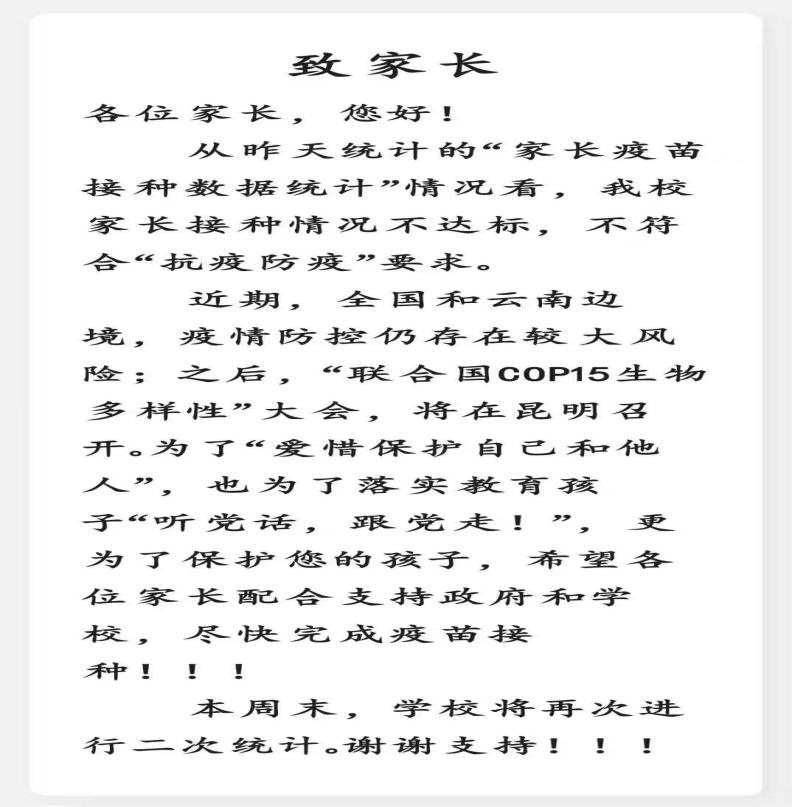 致家长
各位家长，您好！
从昨天统计的“家长疫苗
接种数据统计”情况看，我校
家长接种情况不达标，不符
合“抗疫防疫”要求。
近期，全国和云南边
境，疫情防控仍存在较大风
险；之后，“联合国COP15生物
多样性”大会，将在昆明召
开。为了“爱惜保护自己和他
人”，也为了落实教育孩
子“听党话，跟党走！”，更
为了保护您的孩子，希望各
位家长配合支持政府和学
校，尽快完成疫苗接
种！！！
本周末，学校将再次进
行二次统计。谢谢支持！！！